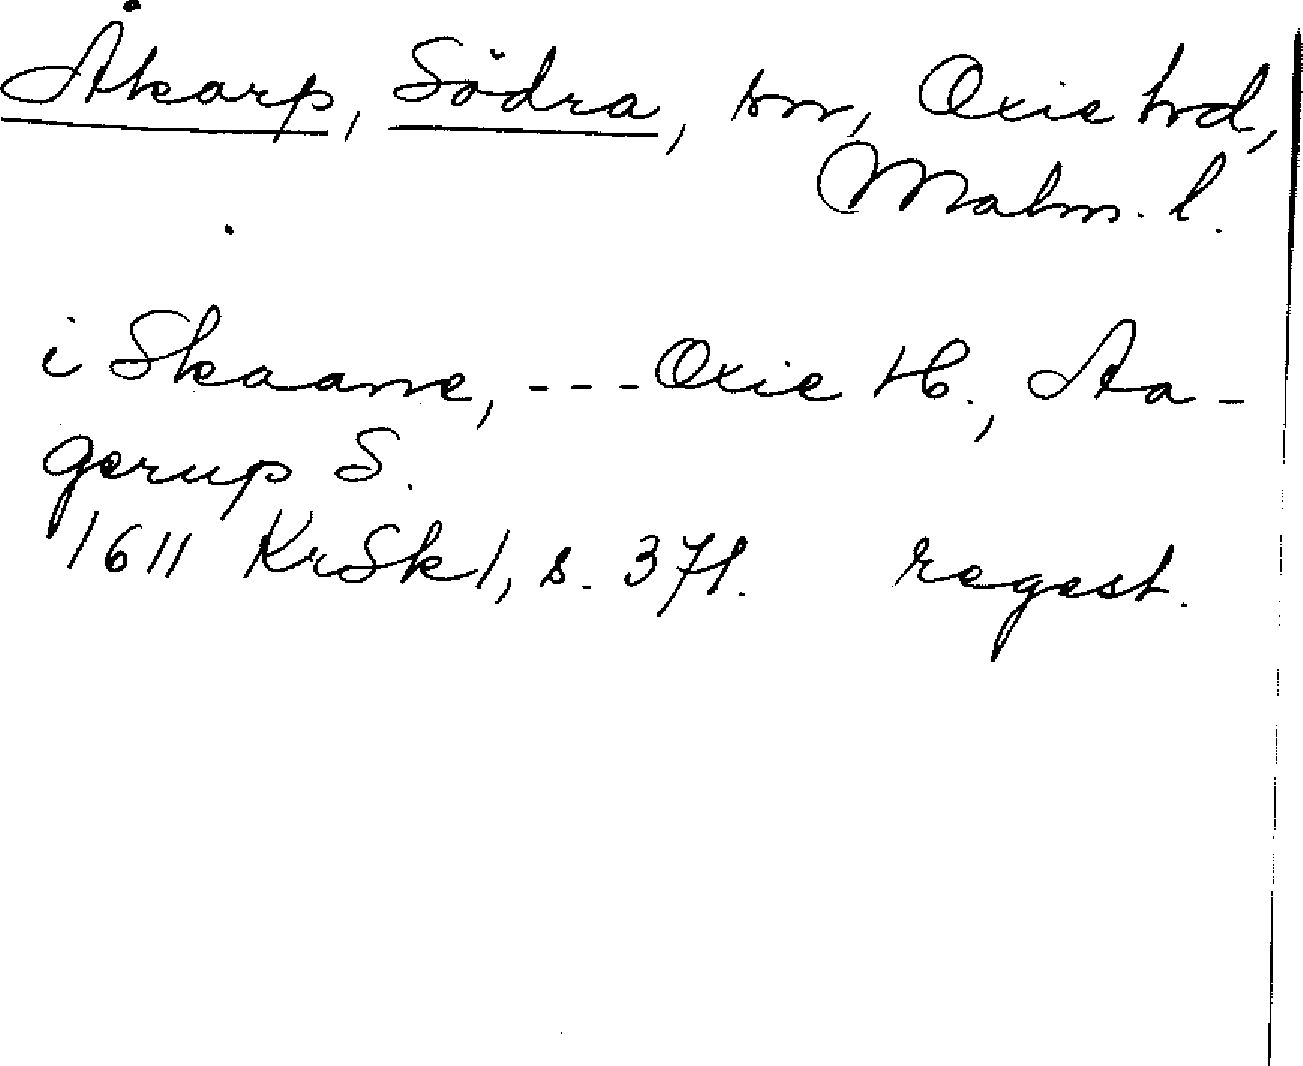 Åkarp, Södra, sn, Oxie hd,
Malm. l.
i Skaane, --- Oxie H., Aa-
gerup S.
1611 KrSk1, s. 371. regest.